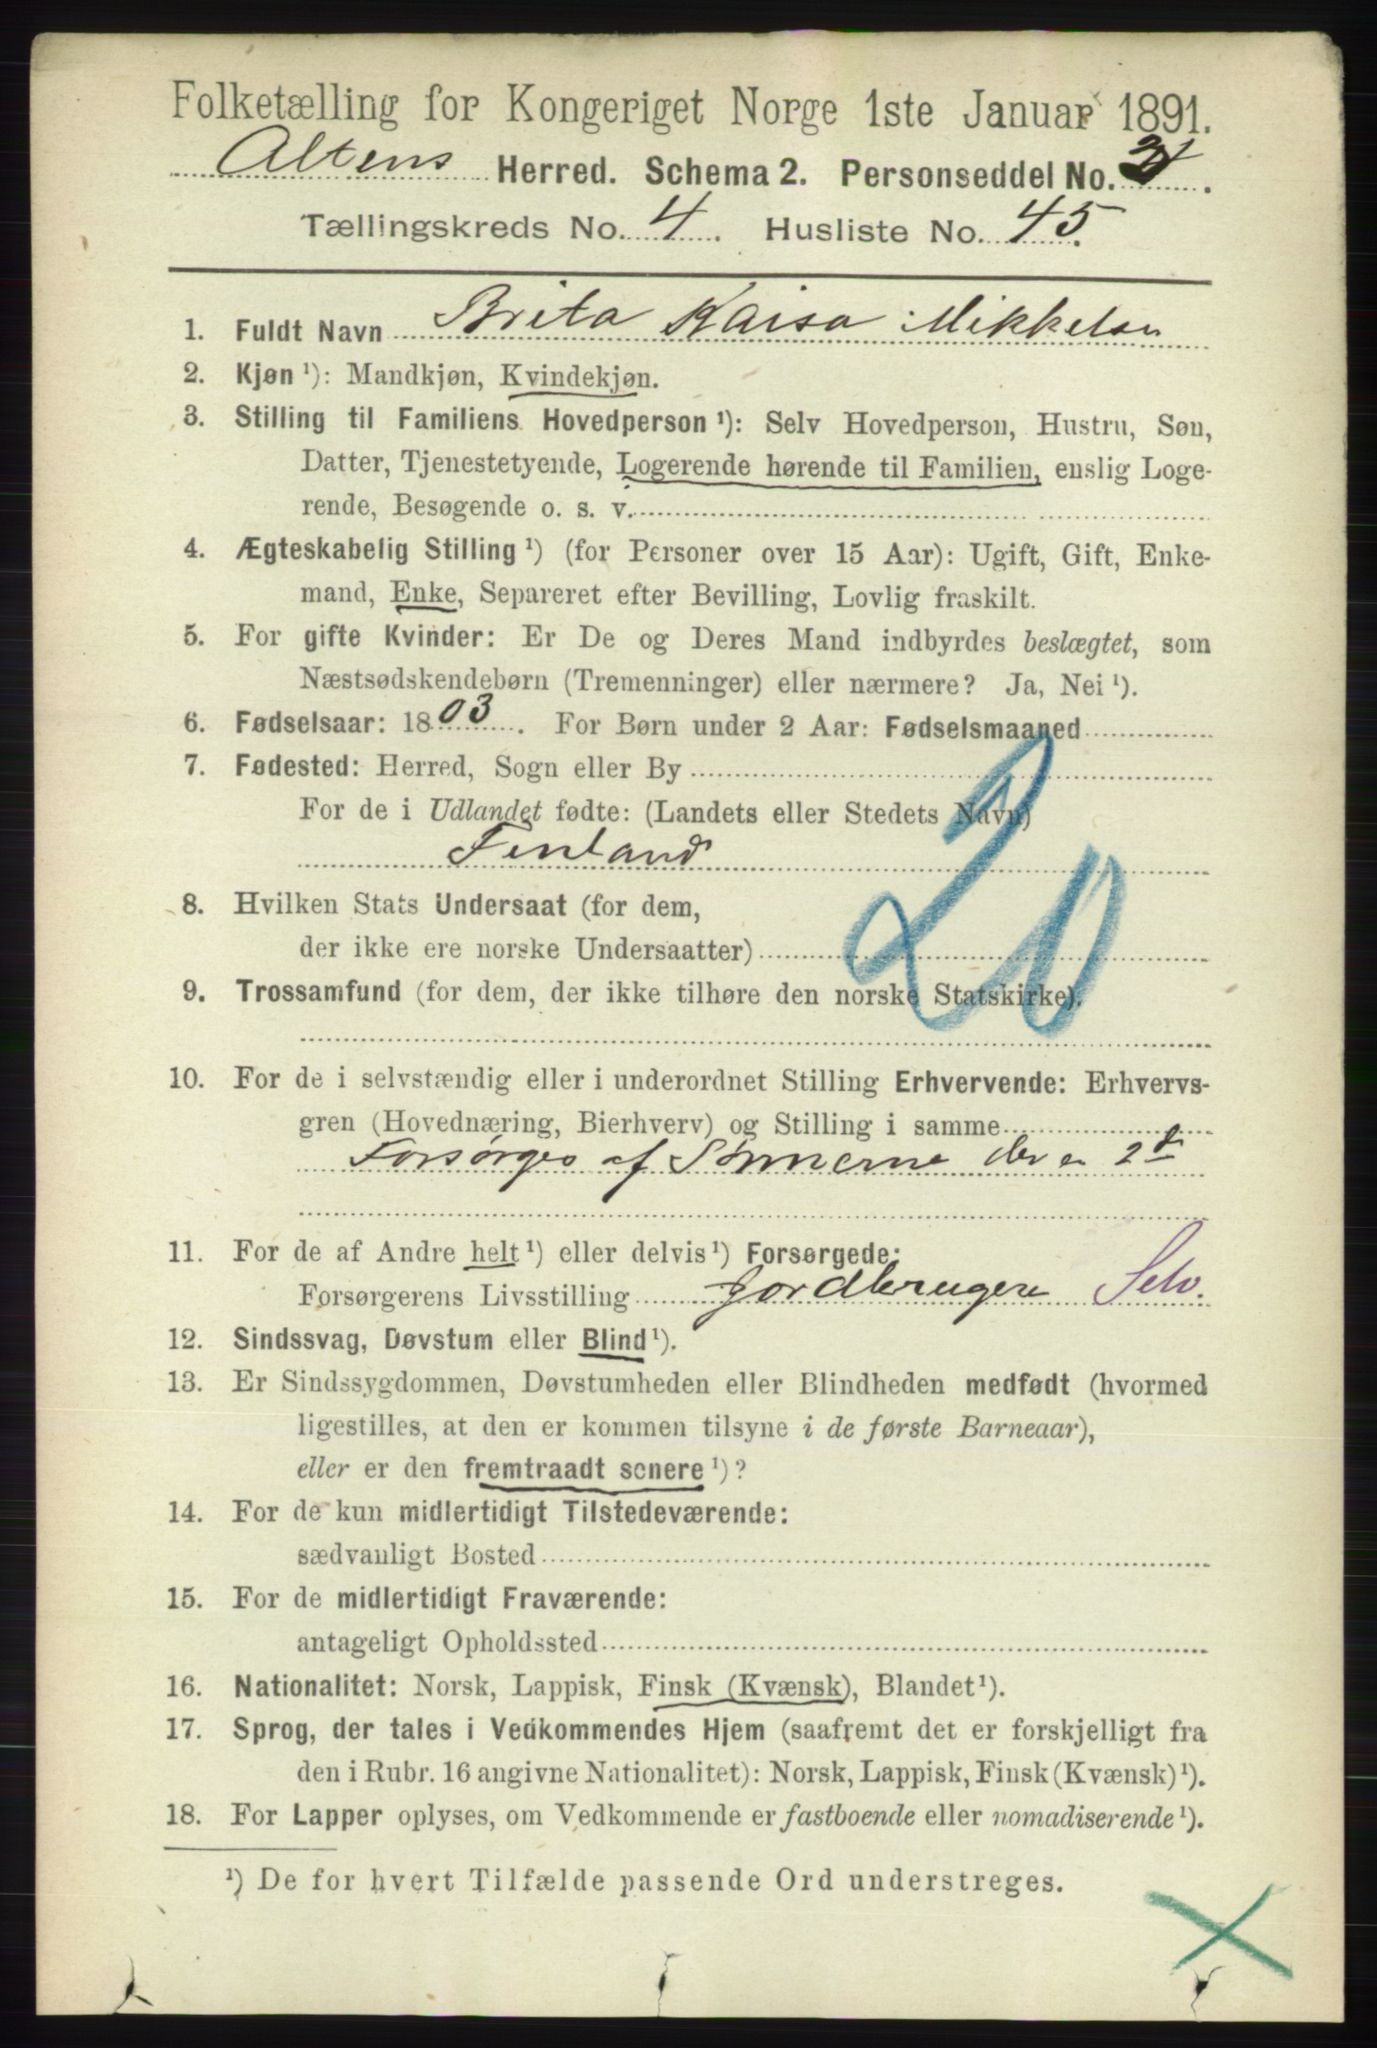 Folketælling for Kongeriget Norge 1ste Januar 1891.
Altens Herred. Schema 2. Personseddel No.
Tællingskreds No. 4. Husliste No. 45.
1. Fuldt Navn Brita Kaisa Mikkelsen
2. Kjøn ¹): Mandkjøn, Kvindekjøn.
3. Stilling til Familiens Hovedperson ¹): Selv Hovedperson, Hustru, Søn,
Datter, Tjenestetyende, Logerende hørende til Familien, enslig Loge-
rende, Besøgende o. s. v.
4. Ægteskabelig Stilling ¹) (for Personer over 15 Aar): Ugift, Gift, Enke-
mand, Enke, Separeret efter Bevilling, Lovlig fraskilt.
5. For gifte Kvinder: Er De og Deres Mand indbyrdes beslægtet, som
Næstsødskendebørn (Tremenninger) eller nærmere? Ja, Nei ¹).
6. Fødselsaar: 1803. For Børn under 2 Aar: Fødselsmaaned
7. Fødested: Herred, Sogn eller By
For de i Udlandet fødte: (Landets eller Stedets Navn)
Finland
20
8. Hvilken Stats Undersaat (for dem,
der ikke ere norske Undersaatter)
9. Trossamfund (for dem, der ikke tilhøre den norske Statskirke).
10. For de i selvstændig eller i underordnet Stilling Erhvervende: Erhvervs-
gren (Hovednæring, Bierhverv) og Stilling i samme
Forsørges af Sønnerne der er 2
11. For de af Andre helt ¹) eller delvis ¹) Forsørgede:
Forsørgerens Livsstilling Jordbrugere Selv.
12. Sindssvag, Døvstum eller Blind ¹).
13. Er Sindssygdommen, Døvstumheden eller Blindheden medfødt (hvormed
ligestilles, at den er kommen tilsyne i de første Barneaar),
eller er den fremtraadt senere ¹)?
14. For de kun midlertidigt Tilstedeværende:
sædvanligt Bosted
15. For de midlertidigt Fraværende:
antageligt Opholdssted
16. Nationalitet: Norsk, Lappisk, Finsk (Kvænsk), Blandet ¹).
17. Sprog, der tales i Vedkommendes Hjem (saafremt det er forskjelligt fra
den i Rubr. 16 angivne Nationalitet): Norsk, Lappisk, Finsk (Kvænsk) ¹).
18. For Lapper oplyses, om Vedkommende er fastboende eller nomadiserende ¹).
¹) De for hvert Tilfælde passende Ord understreges.